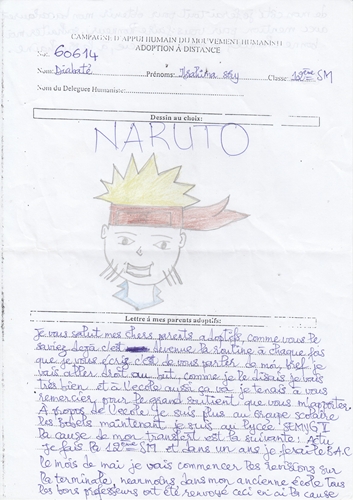 CAMPAGNE D'APPUI HUMAIN DU MOUVEMENT HUMANISTE
ADOPTION À DISTANCE
N°: 60614
Nom: Diabaté Prénoms: Classe 12ème SM
Nom du Délégué Humaniste:
Dessin au choix:
NARUTO
Lettre à mes parents adoptifs:
Je vous salut mes chers parents adoptifs, comme vous le
saviez déjà c'est devenue la routine à chaque fois
que je vous écris c'est de vous parler de moi, bief je
vais aller droit au but comme je le disais je vais
très bien et à l'ecole aussi ça va je tenais à vous
remercier pour le grand soutient que vous m'apportes.
À propos de l'ecole je suis plus au groupe scolaire
les Bobels maintenant je suis au lycée "SEMYG"
la cause de mon transfert est la suivante: Actu
je fais la 12ème SM et dans un ans je ferai le B.A.C
le mois de mai je vais commencer les révisions sur
la terminale, néarmoins dans mon ancienne école tous
les bons professeurs ont été renvoyé ceci ne à la cause